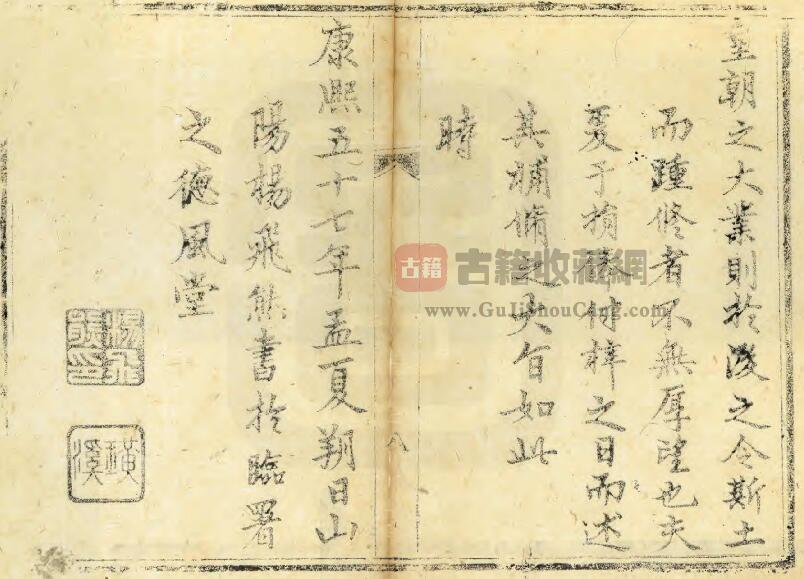 皇朝之大業則於後之令斯土
而踵修者不無厚望也夫
爰于捐俸付梓之日而述
其補脩之大旨如此
時
八
康熙五十七年孟夏朔日山
陽楊飛熊書於臨署
之德風堂
楊飛熊印
璜溪
古籍
古籍收藏網
www.GuJiShouCang.com